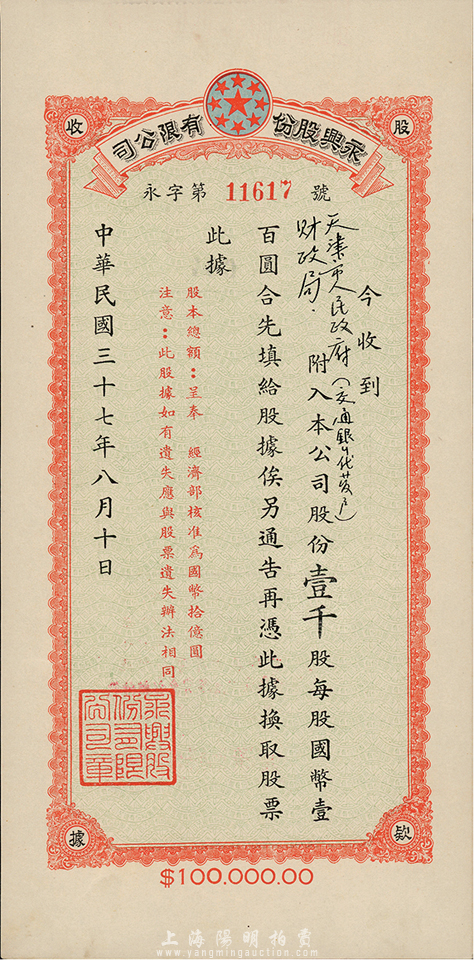 永興股份有限公司
股
欵
收
據
永字第 11617 號
今收到
天津市人民政府(交通銀行代
財政局.
附入本公司股份壹千股每股國幣壹
百圓合先填給股據俟另通告再憑此據換取股票
此據
股本總額：呈奉 經濟部核准爲國幣拾億圓
注意：此股據如有遺失應與股票遺失辦法相同
中華民國三十七年八月十日
永興股份有限公司章
$100.000.00
上海陽明拍賣
www.yangmingauction.com